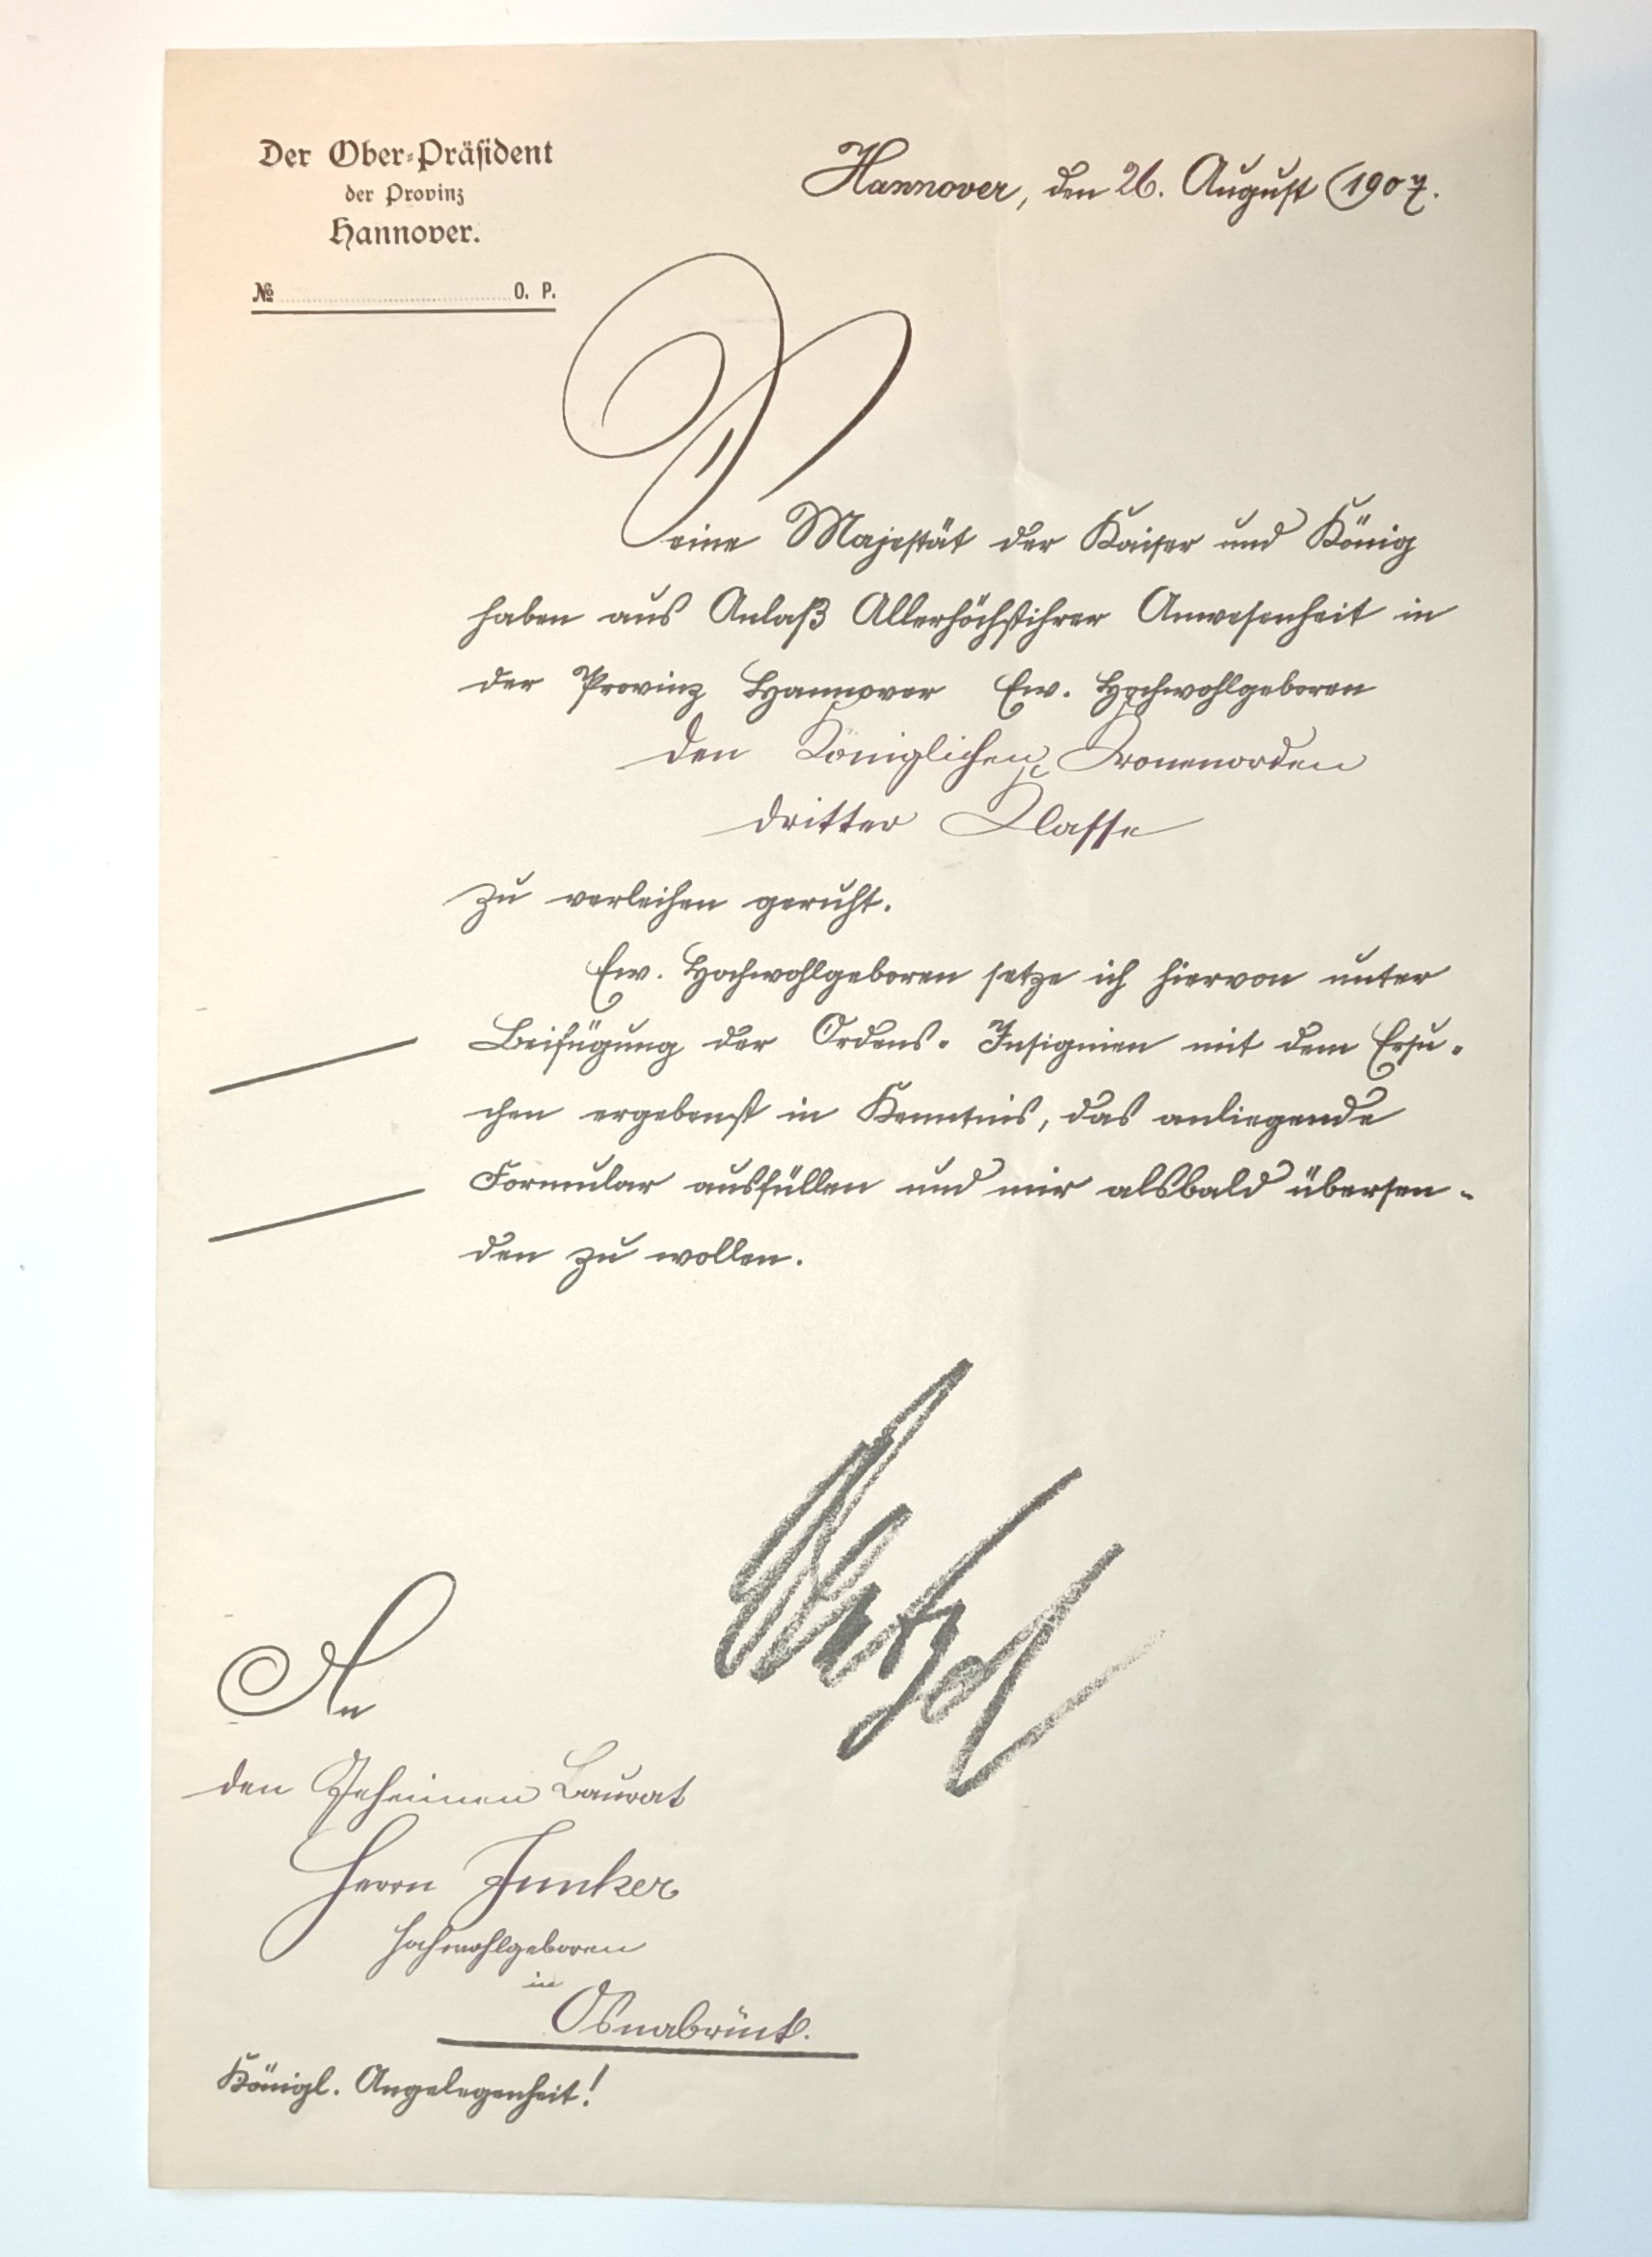 Der Ober-Präsident
der Provinz
Hannover.
№ O. P.
Hannover, den 26. August 1907.
Seine Majestät der Kaiser und König
haben aus Anlaß Allerhöchstihrer Anwesenheit in
der Provinz Hannover Ew. Hochwohlgeboren
den Königlichen Kronenorden
dritter Klasse
zu verleihen geruht.
Ew. Hochwohlgeboren setze ich hiervon unter
Beifügung der Ordens-Insignien mit dem Ersu-
chen ergebenst in Kenntnis, das anliegende
Formular ausfüllen und mir alsbald übersen-
den zu wollen.
Wentzel
An
den Geheimen Baurat
Herrn Junker
Hochwohlgeboren
in
Osnabrück.
Königl. Angelegenheit!